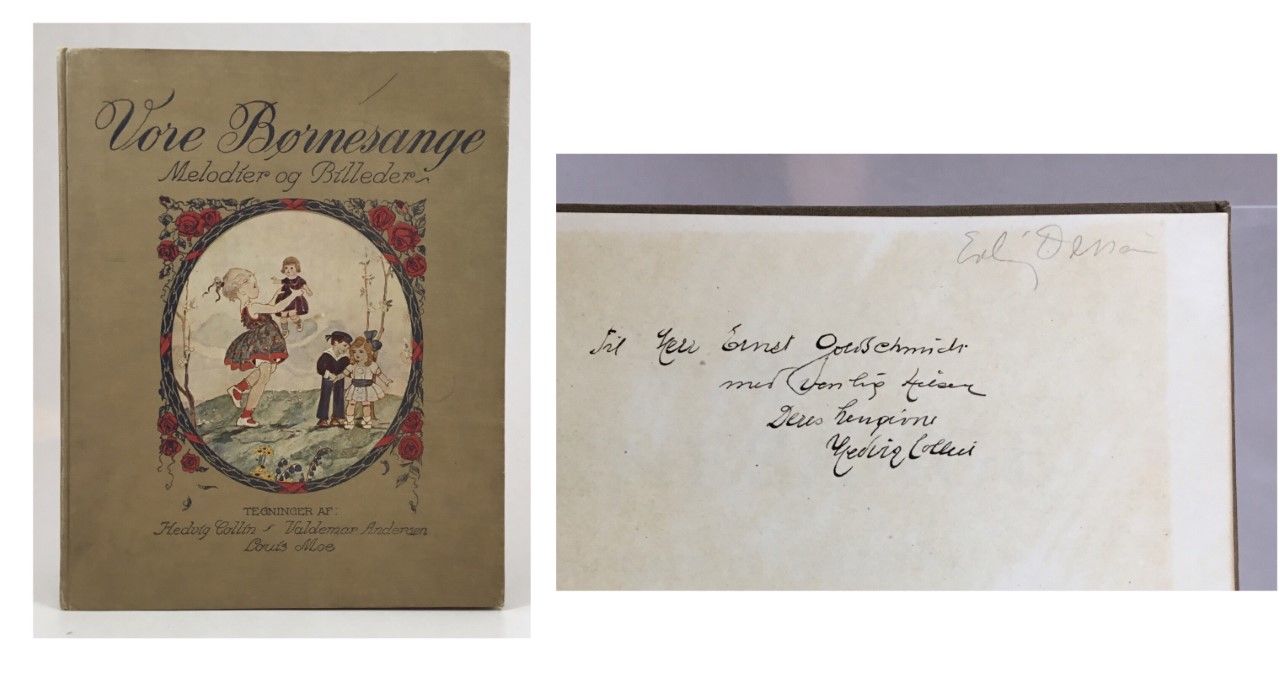 Vore Børnesange
Melodier og Billeder
TEGNINGER AF:
Hedvig Collin Valdemar Andersen
Louis Moe
Til Herr Ernst Goldschmidt
med venlig Hilsen
Deres hengivne
Hedvig Collin